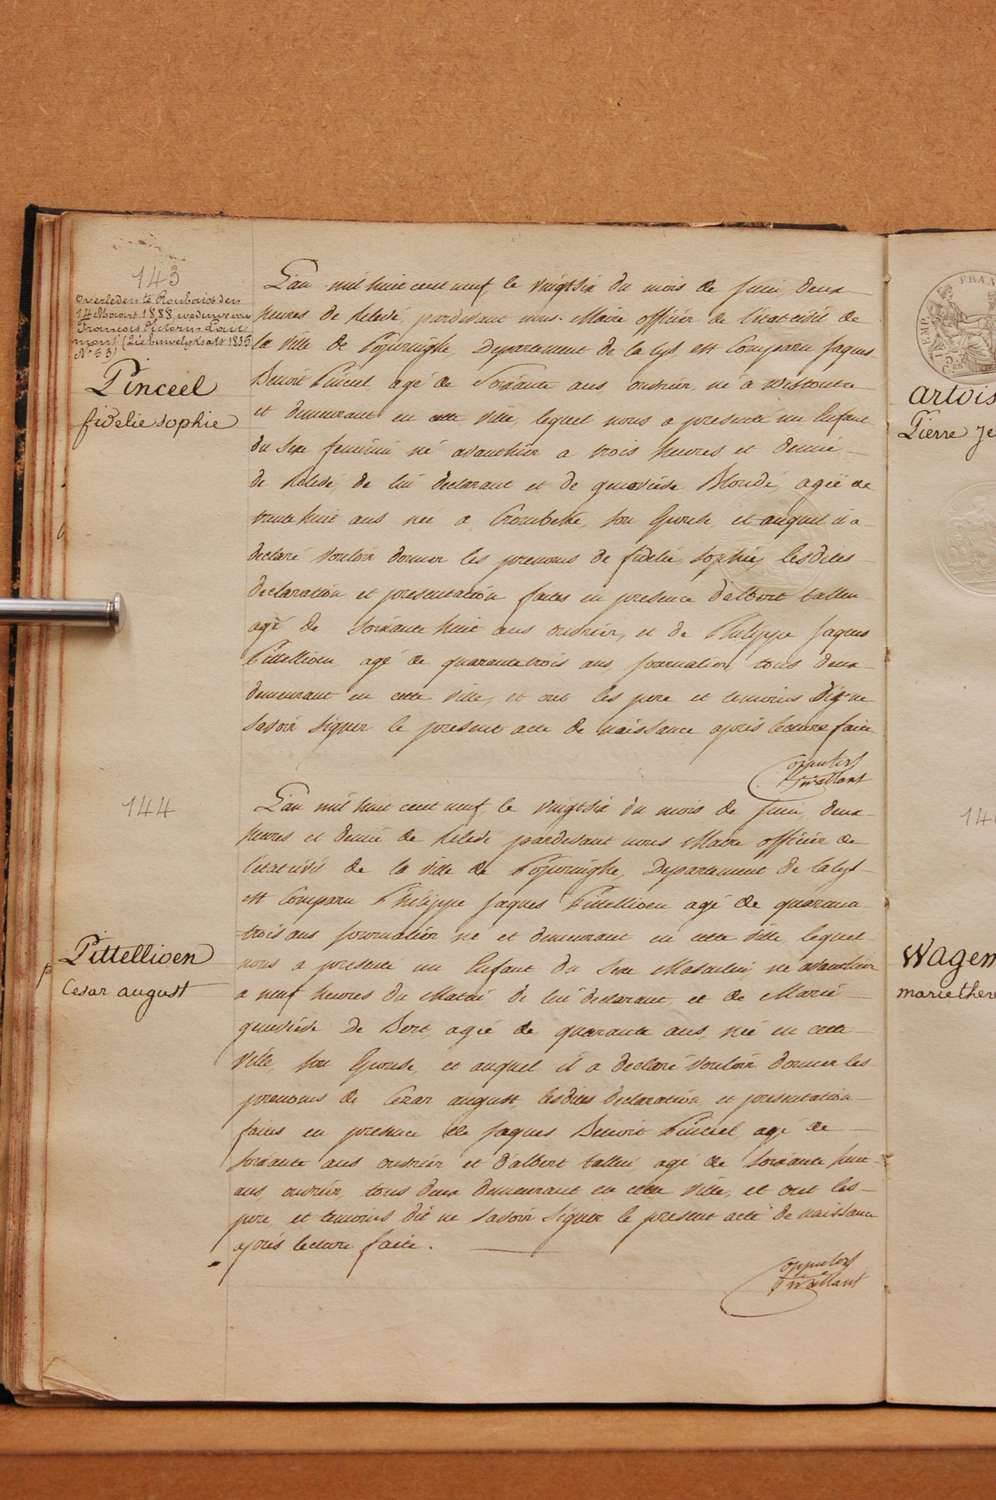 143
overleden te Roubaix den
14 Maart 1888, weduwe van
François Victorin Dour
mont (Zie huwelijksakt 1835
N° 63)
Pinceel
fidelie sophie
L'an mil huit cent neuf, le vingtsix du mois de juin deux
heures de relevé, pardevant nous Maire officier de l'état civil de
la ville de Poperinghe, Departement de la lys est comparu Jaques
Benoit Pinceel agé de Soixante ans, ouvrier, né a Westoutre
et demeurant en cette ville, lequel nous a presenté un Enfant
du Sexe feminin né avanthier a trois heures et demie
de relevé, de lui declarant et de genevieve Blondé, agée de
trente huit ans née a Crombeke, son Epouse, et auquel il a
declaré vouloir donner les prenoms de fidelie sophie, lesdites
declaration et presentation faites en presence d'albert talleu
agé de soixante huit ans ouvrier, et de Philippe Jaques
Pittellioen agé de quarante trois ans journalier tous deux
demeurant en cette ville, et ont les pere et temoins dit ne
savoir signer le present acte de naissance après lecture faite
144
Pittellioen
Cesar august
L'an mil huit cent neuf, le vingtsix du mois de juin, deux
heures et demie de relevé pardevant nous Maire officier de
l'état civil de la ville de Poperinghe, Departement de la lys
est comparu Philippe Jaques Pittellioen agé de quarante
trois ans journalier né et demeurant en cette ville, lequel
nous a presenté un Enfant du Sexe Masculin né avanthier
a neuf heures du Matin de lui declarant et de Marie
genevieve de Bert, agée de quarante ans, née en cette
ville, son Epouse, et auquel il a declaré vouloir donner les
prenoms de Cezar august, lesdites declaration et presentation
faites en presence de Jaques Benoit Pinceel agé de
soixante ans ouvrier et d'albert talleu agé de soixante huit
ans ouvrier, tous deux demeurant en cette ville, et ont les
pere et temoins dit ne savoir signer le present acte de naissance
après lecture faite.
artois
Pierre Je
14
Wagem
marie there